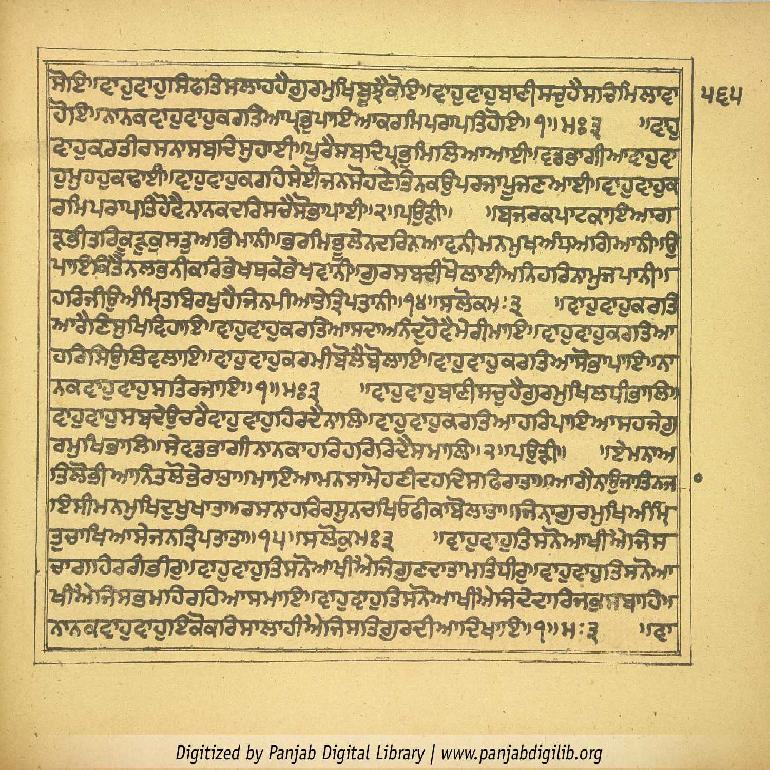 ਸੋਇ॥ਵਾਹੁਵਾਹੁਸਿਫਤਿਸਲਾਹਹੈਗੁਰਮੁਖਿਬੂਝੈਕੋਇ॥ਵਾਹੁਵਾਹੁਬਾਣੀਸਚੁਹੈਸਚਿਮਿਲਾਵਾ
੫੬੫
ਹੋਇ॥ਨਾਨਕਵਾਹੁਵਾਹੁਕਰਤਿਆਪ੍ਰਭੁਪਾਇਆਕਰਮਿਪਰਾਪਤਿਹੋਇ॥੧॥ਮਃ੩ ॥ਵਾਹੁ
ਵਾਹੁਕਰਤੀਰਸਨਾਸਬਦਿਸੁਹਾਈ॥ਪੂਰੈਸਬਦਿਪ੍ਰਭੁਮਿਲਿਆਆਈ॥ਵਡਭਾਗੀਆਵਾਹੁਵਾ
ਹੁਮੁਹਹੁਕਢਾਈ॥ਵਾਹੁਵਾਹੁਕਰਹਿਸੇਈਜਨਸੋਹਣੇਤਿਨਕਉਪਰਜਾਪੂਜਣਆਈ॥ਵਾਹੁਵਾਹੁਕ
ਰਮਿਪਰਾਪਤਿਹੋਵੈਨਾਨਕਦਰਿਸਚੈਸੋਭਾਪਾਈ॥੨॥ਪਉੜੀ॥ ॥ਬਜਰਕਪਾਟਕਾਇਆਗ
ੜ੍ਹਭੀਤਰਿਕੂੜੁਕੁਸਤੁਅਭਿਮਾਨੀ॥ਭਰਮਿਭੂਲੇਨਦਰਿਨਆਵਨੀਮਨਮੁਖਅੰਧਅਗਿਆਨੀ॥ਉ
ਪਾਇਕਿਤੈਨਲਭਨੀਕਰਿਭੇਖਥਕੇਭੇਖਵਾਨੀ॥ਗੁਰਸਬਦੀਖੋਲਾਈਅਨਿਹਰਿਨਾਮੁਜਪਾਨੀ॥
ਹਰਿਜੀਉਅੰਮ੍ਰਿਤਬਿਰਖੁਹੈਜਿਨਪੀਆਤੇਤ੍ਰਿਪਤਾਨੀ॥੧੪॥ਸਲੋਕਮਃ੩ ॥ਵਾਹੁਵਾਹੁਕਰਤਿ
ਆਰੈਣਿਸੁਖਿਵਿਹਾਇ॥ਵਾਹੁਵਾਹੁਕਰਤਿਆਸਦਾਅਨੰਦੁਹੋਵੈਮੇਰੀਮਾਇ॥ਵਾਹੁਵਾਹੁਕਰਤਿਆ
ਹਰਿਸਿਉਲਿਵਲਾਇ॥ਵਾਹੁਵਾਹੁਕਰਮੀਬੋਲੈਬੋਲਾਇ॥ਵਾਹੁਵਾਹੁਕਰਤਿਆਸੋਭਾਪਾਇ॥ਨਾ
ਨਕਵਾਹੁਵਾਹੁਸਤਿਰਜਾਇ॥੧॥ਮਃ੩ ॥ਵਾਹੁਵਾਹੁਬਾਣੀਸਚੁਹੈਗੁਰਮੁਖਿਲਧੀਭਾਲਿ॥
ਵਾਹੁਵਾਹੁਸਬਦੇਉਚਰੈਵਾਹੁਵਾਹੁਹਿਰਦੈਨਾਲਿ॥ਵਾਹੁਵਾਹੁਕਰਤਿਆਹਰਿਪਾਇਆਸਹਜੇਗੁ
ਰਮੁਖਿਭਾਲਿ॥ਸੇਵਡਭਾਗੀਨਾਨਕਾਹਰਿਹਰਿਰਿਦੈਸਮਾਲਿ॥੨॥ਪਉੜੀ॥ ॥ਏਮਨਾਅ
ਤਿਲੋਭੀਆਨਿਤਲੋਭੇਰਾਤਾ॥ਮਾਇਆਮਨਸਾਮੋਹਣੀਦਹਦਿਸਫਿਰਾਤਾ॥ਆਗੈਨਾਉਜਾਤਿਨਜ
ਾਇਸੀਮਨਮੁਖਿਦੁਖੁਖਾਤਾ॥ਰਸਨਾਹਰਿਰਸੁਨਚਖਿਓਫੀਕਾਬੋਲਾਤਾ॥ਜਿਨਾਗੁਰਮੁਖਿਅੰਮ੍ਰਿ
ਤੁਚਾਖਿਆਸੇਜਨਤ੍ਰਿਪਤਾਤਾ॥੧੫॥ਸਲੋਕੁਮਃ੩ ॥ਵਾਹੁਵਾਹੁਤਿਸਨੋਆਖੀਐਜਿਸ
ਚਾਗਹਿਰਗੰਭੀਰੁ॥ਵਾਹੁਵਾਹੁਤਿਸਨੋਆਖੀਐਜਿਗੁਣਦਾਤਾਮਤਿਧੀਰੁ॥ਵਾਹੁਵਾਹੁਤਿਸਨੋਆ
ਖੀਐਜਿਸਭਮਹਿਰਹਿਆਸਮਾਇ॥ਵਾਹੁਵਾਹੁਤਿਸਨੋਆਖੀਐਜਿਦੇਦਾਰਿਜਕੁਸਬਾਹਿ॥
ਨਾਨਕਵਾਹੁਵਾਹੁਇਕੋਕਰਿਸਾਲਾਹੀਐਜਿਸਤਿਗੁਰਦੀਆਦਿਖਾਇ॥੧॥ਮਃ੩ ॥ਵਾ
Digitized by Panjab Digital Library | www.panjabdigilib.org